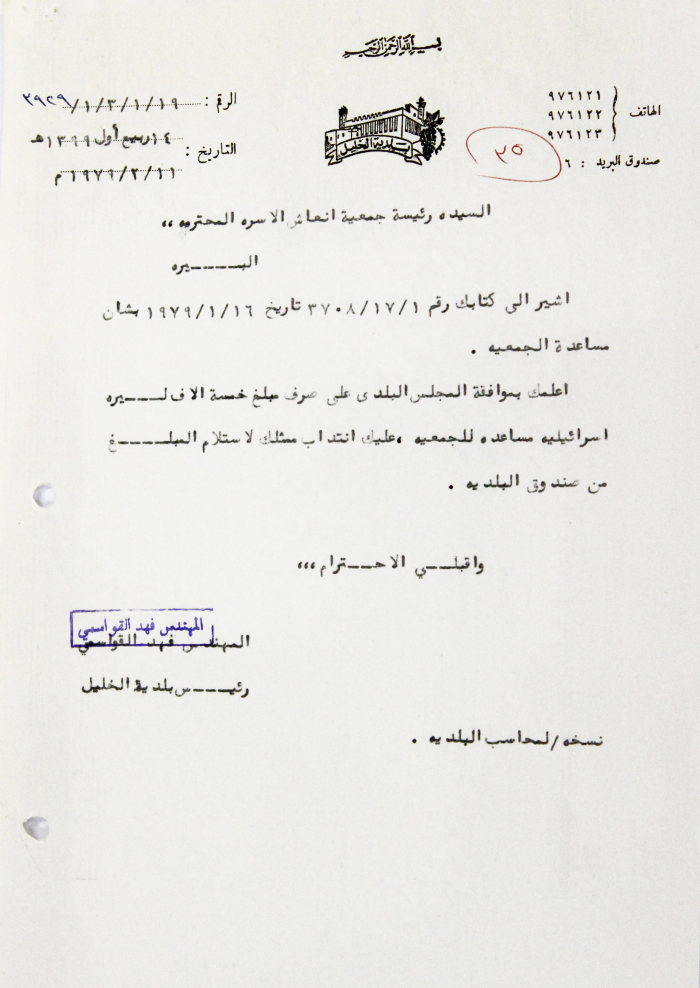 بسم الله الرحمن الرحيم
الرقم : ٣٩٢٩/١/٣/١/١٩
١٤ ربيع أول ١٣٩٩هـ
التاريخ :
١٩٧٩/٢/١١ م
بلدية الخليل
الهاتف
٩٧٦١٢١
٩٧٦١٢٢
٩٧٦١٢٣
صندوق البريد : ٦
٣٥
السيده رئيسة جمعية انعاش الاسره المحترمه ،،
البـــــيره
اشير الى كتابك رقم ٣٧٠٨/١٧/١ تاريخ ١٩٧٩/١/١٦ بشان
مساعدة الجمعيه .
اعلمك بموافقة المجلس البلدى على صرف مبلغ خمسة الاف لـــيره
اسرائيليه مساعده للجمعيه ،عليك انتداب ممثلك لاستلام المبلـــــغ
من صندوق البلديه .
واقبلـــي الاحـــترام ،،،
المهندس فهد القواسمي
المهندس فهد القواسمي
رئيـــــس بلدية الخليل
نسخه/لمحاسب البلديه .